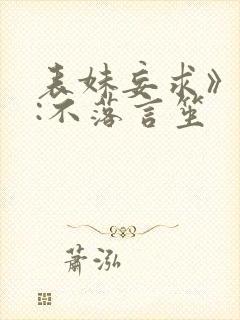 表妹妄求》
:不落言筌
萧泓